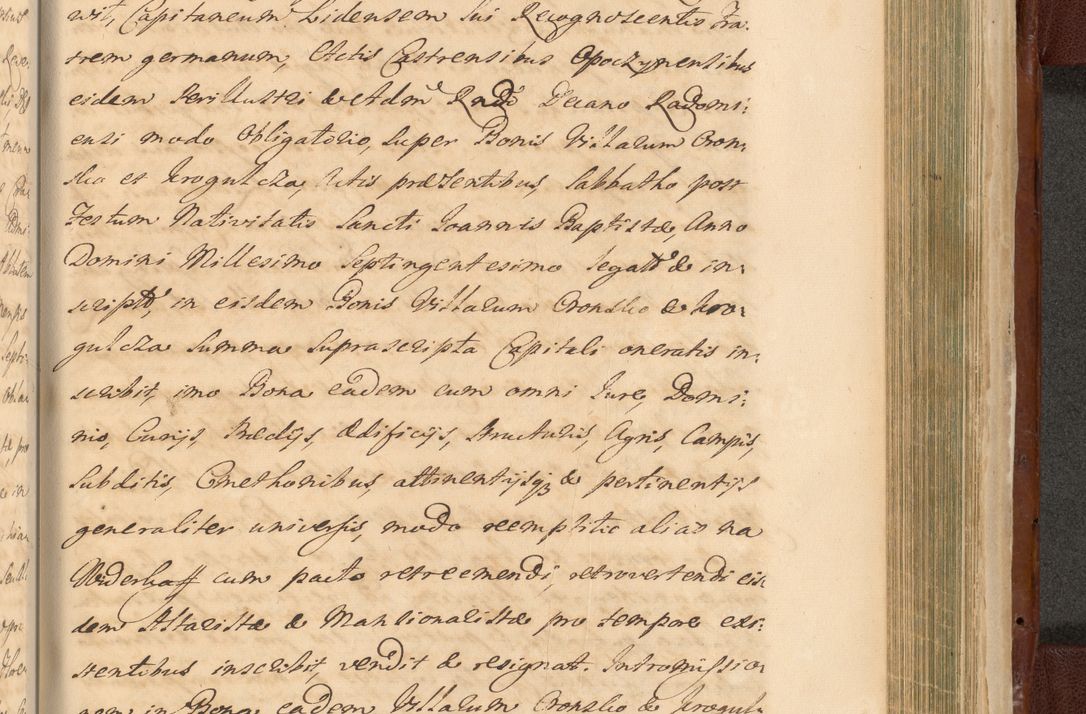 wit, Capitaneum Lidensem sui Recognoscentis Fra:
trem germanum, Actis Castrensibus Opocznensibus
eidem Perillustri & Adm Rndo Decano Radomi:
ensi modo Obligatorio, super Bonis Villarum Cron:
sko et Krogulcza, Actis præsentibus, Sabbatho post
Festum Nativitatis Sancti Joannis Baptistæ, Anno
Domini Millesimo Septingentesimo legat & in:
script, in eisdem Bonis Villarum Cronsko & Kro:
gulcza Summa Suprascripta Capitali oneratis in:
scribit, imo Bona eadem cum omni Jure, Domi:
nio, Curijs, Prædijs, Ædificijs, Structuris, Agris, Campis,
Subditis, Cmethonibus, attinentijsq & pertinentijs
generaliter universis, modo reemptitio alias na
Widerkaff cum pacto retroemendi, retrovertendi eis
dem Altaristæ & Mansionalistæ pro tempore exi:
stentibus inscribit, vendit & resignat. Intromission
nem in Bona eadem Villarum Cronsko & Krogul: